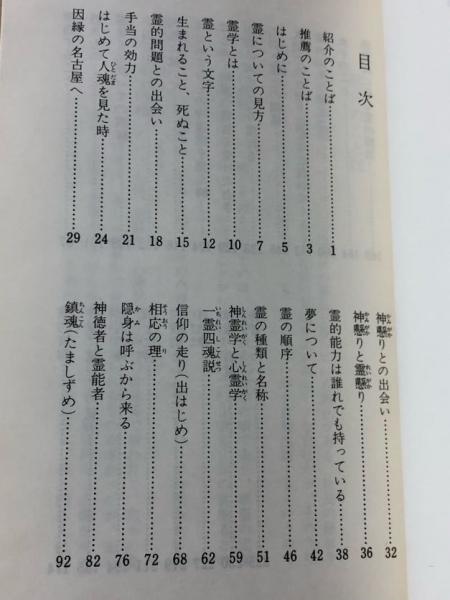 目次
紹介のことば……1
推薦のことば……3
はじめに……5
霊についての見方……7
霊学とは……10
霊という文字……12
生まれること、死ぬこと……15
霊的問題との出会い……18
手当の効力……21
はじめて人魂を見た時……24
因縁の名古屋へ……29
神懸りとの出会い……32
神懸りと霊懸り……36
霊的能力は誰れでも持っている……38
夢について……42
霊の順序……46
霊の種類と名称……51
神霊学と心霊学……59
一霊四魂説……62
信仰の走り(出はじめ)……68
相応の理……72
隠身は呼ぶから来る……76
神徳者と霊能者……82
鎮魂(たましずめ)……92